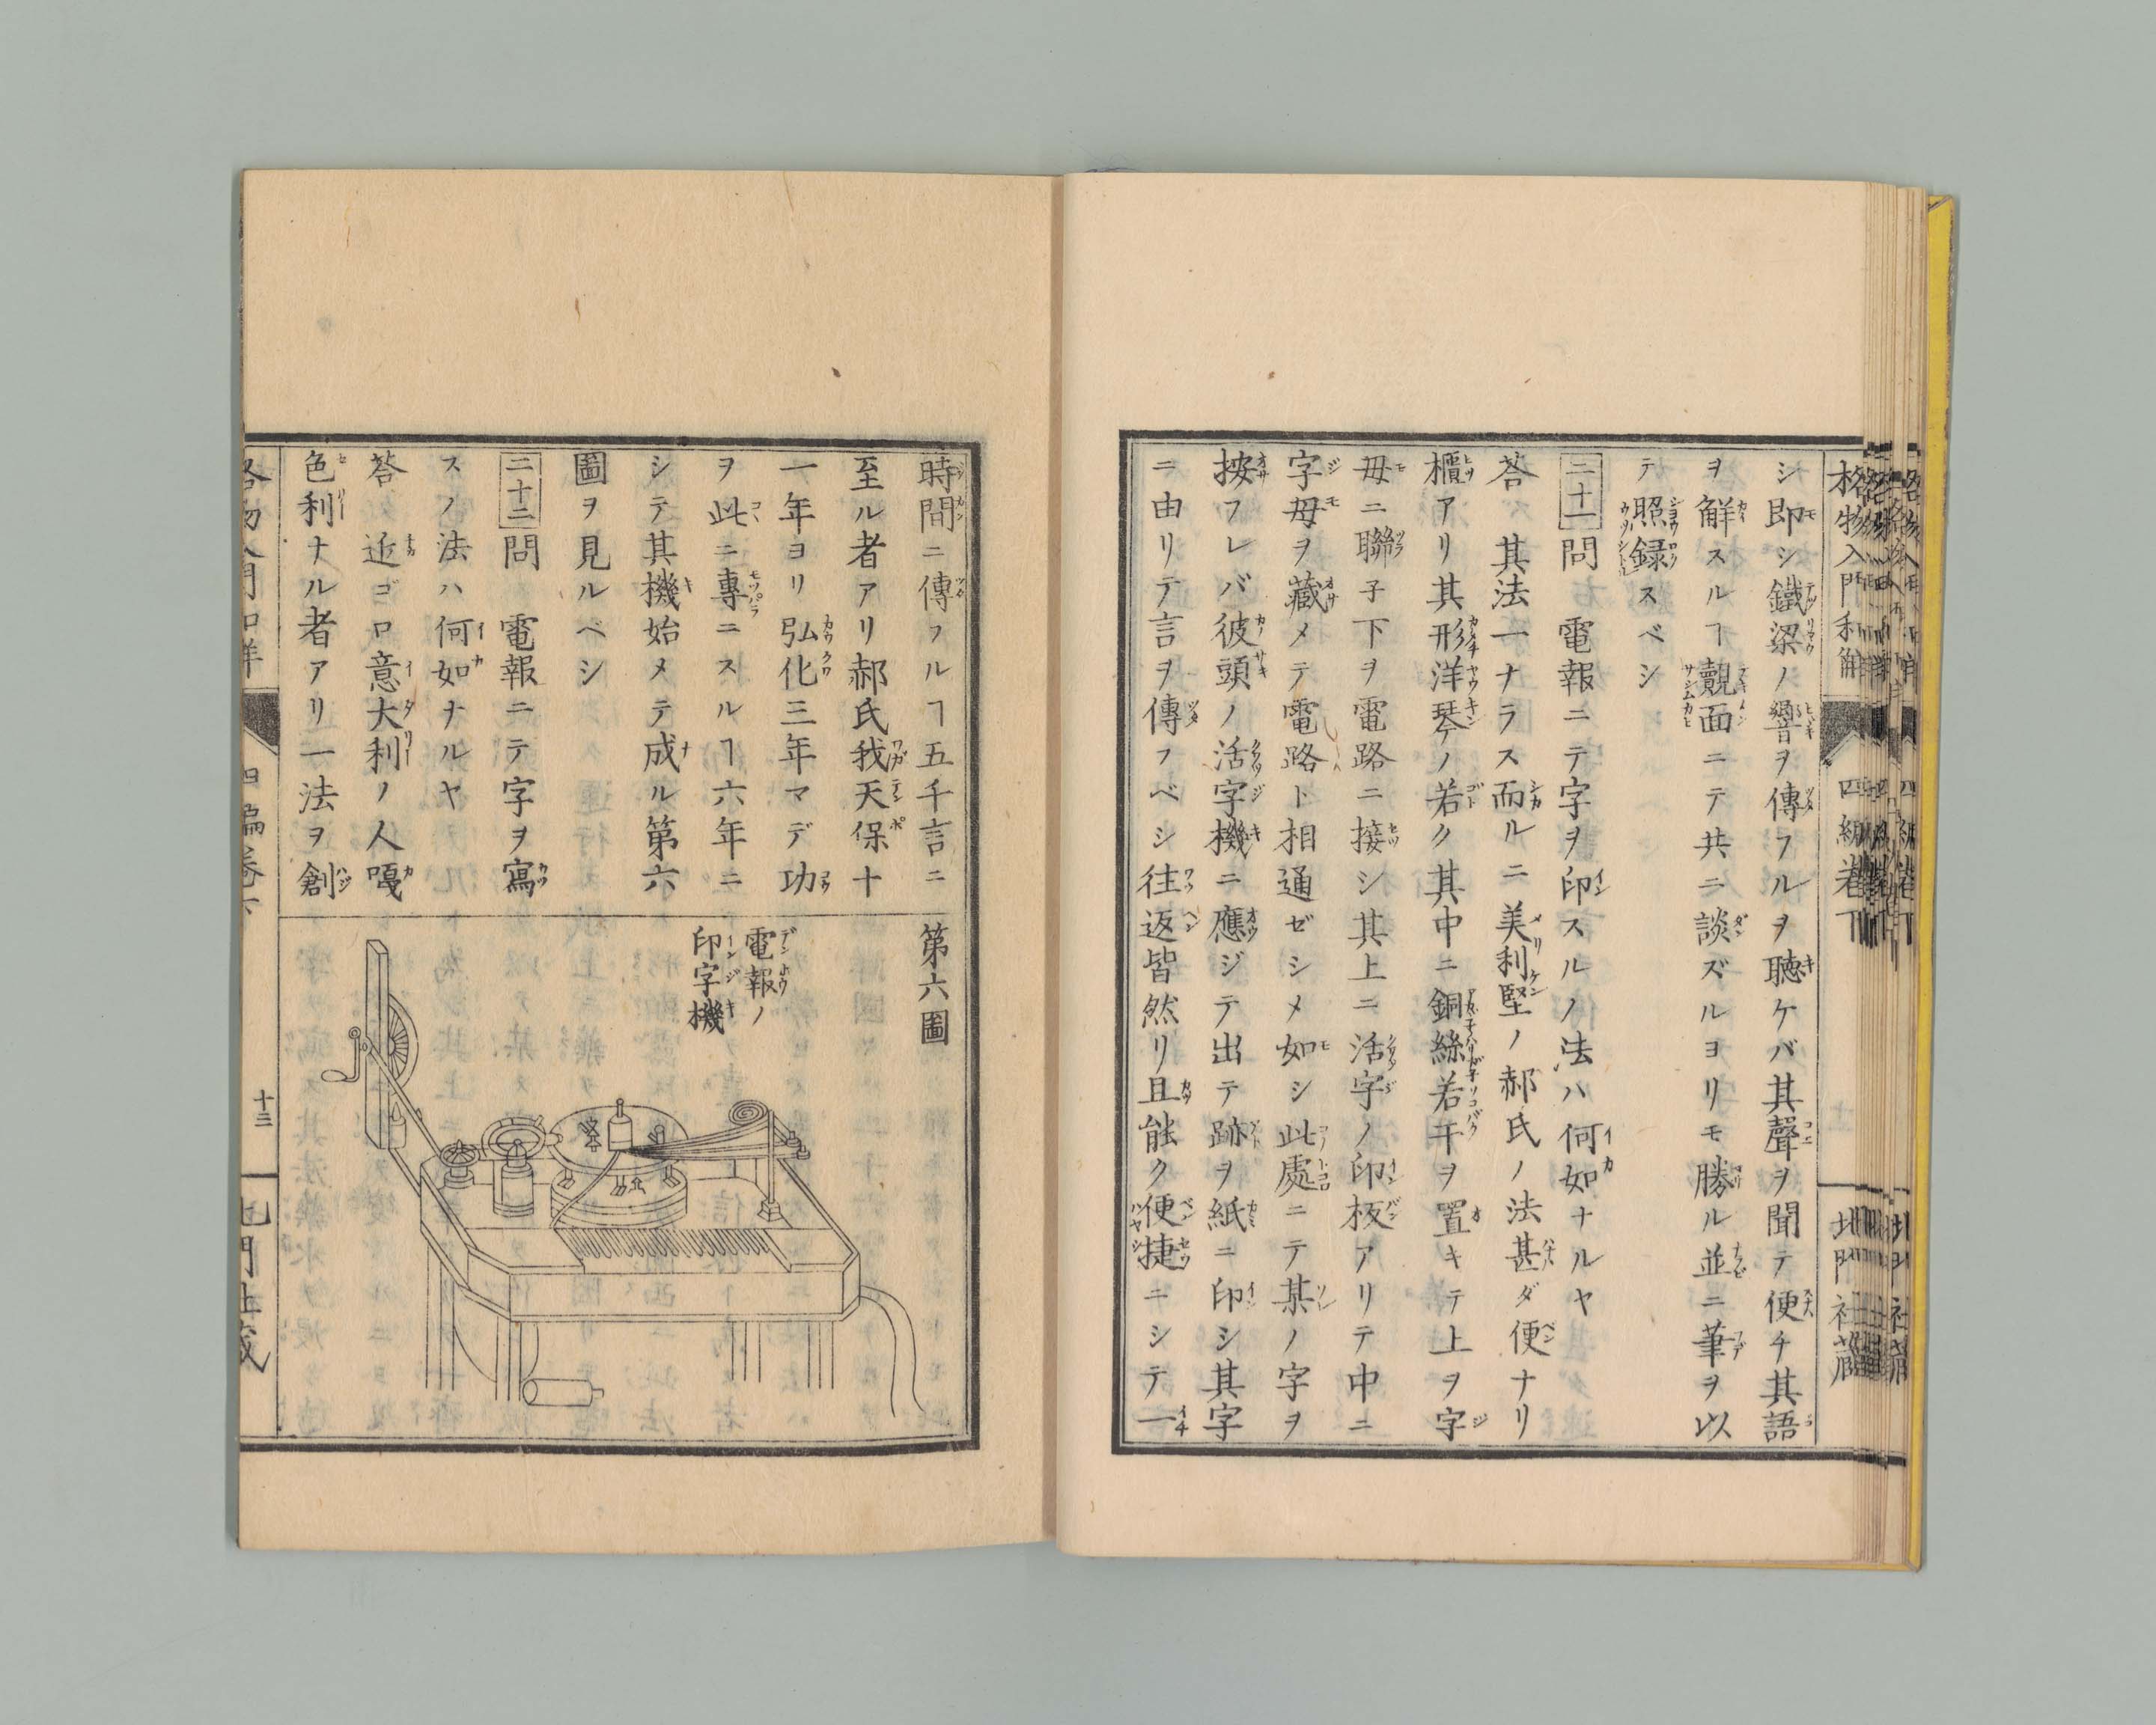 シ即シ鐵梁ノ響ヲ傳フルヲ聽ケバ其聲ヲ聞テ便チ其語
ヲ解スルヿ覿面ニテ共ニ談ズルヨリモ勝ル並ニ筆ヲ以
テ照録スベシ
二十一問　電報ニテ字ヲ印スルノ法ハ何如ナルヤ
答　其法一ナラス而ルニ美利堅ノ郝氏ノ法甚ダ便ナリ
櫃アリ其形洋琴ノ若ク其中ニ銅絲若干ヲ置キテ上ヲ字
母ニ聯子下ヲ電路ニ接シ其上ニ活字ノ印板アリテ中ニ
字母ヲ藏メテ電路ト相通ゼシメ如シ此處ニテ某ノ字ヲ
按フレバ彼頭ノ活字機ニ應ジテ出テ跡ヲ紙ニ印シ其字
ニ由リテ言ヲ傳フベシ往返皆然リ且能ク便捷ニシテ一
格物入門和解
四編卷下
北門社藏
時間ニ傳フルヿ五千言ニ
至ル者アリ郝氏我天保十
一年ヨリ弘化三年マデ功
ヲ此ニ專ニスルヿ六年ニ
シテ其機始メテ成ル第六
圖ヲ見ルベシ
二十二問　電報ニテ字ヲ寫
スノ法ハ何如ナルヤ
答　近ゴロ意大利ノ人嘎
色利ナル者アリ一法ヲ創
第六圖
電報ノ
印字機
十三